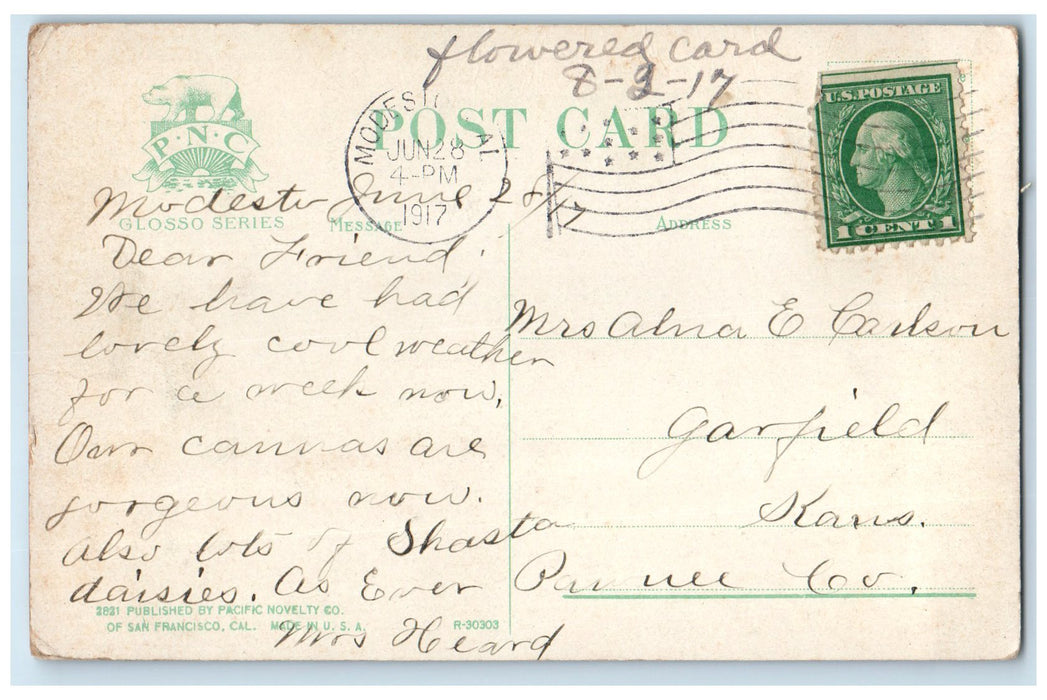 flowered card
8-9-17
P·N·C
POST CARD
MODESTO
JUN 28
4-PM
1917
U.S. POSTAGE
1 CENT 1
GLOSSO SERIES
MESSAGE
ADDRESS
Modesto June 28/17
Dear Friend.
We have had
lovely cool weather
for a week now.
Our cannas are
gorgeous now.
Also lots of Shasta
daisies. As Ever
Mrs Heard
Mrs Alna E Carlson
Garfield
Kans.
Pawnee Co.
2821 PUBLISHED BY PACIFIC NOVELTY CO.
OF SAN FRANCISCO, CAL. MADE IN U. S. A.
R-30303